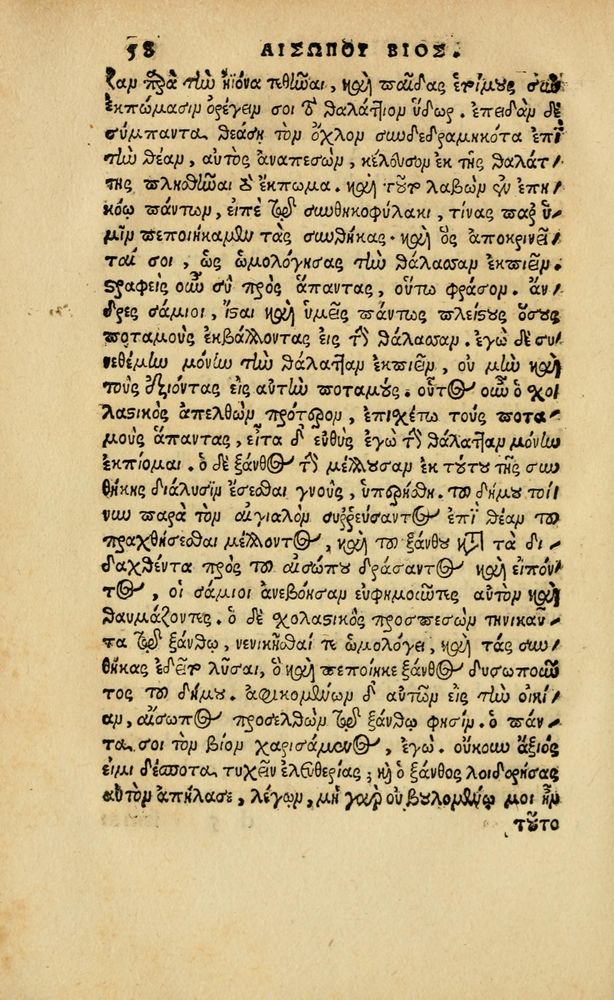 58 ΑΙΣΩΠΟΥ ΒΙΟΣ.
ζαν παρὰ τὴν ἠϊόνα τεθῆναι, καὶ παῖδας ἑτοίμους σὺν
ἐκπώμασιν ὀρέγειν σοι τὸ θαλάττιον ὕδωρ. ἐπειδὰν δὲ
σύμπαντα θεάσῃ τὸν ὄχλον συνδεδραμηκότα ἐπὶ
τὴν θέαν, αὐτὸς ἀναπεσὼν, κέλευσον ἐκ τῆς θαλάτ-
της πλησθῆναι τὸ ἔκπωμα. καὶ τοῦτο λαβὼν ἐν ἐπη-
κόῳ πάντων, εἰπὲ τῷ συνθηκοφύλακι, τίνας παρ' ὑ-
μῖν πεποιήκαμεν τὰς συνθήκας. καὶ ὃς ἀποκρινεῖ-
ταί σοι, ὡς ὡμολόγησας τὴν θάλασσαν ἐκπιεῖν.
στραφεὶς οὖν σὺ πρὸς ἅπαντας, οὕτω φράσον. ἄν-
δρες σάμιοι, ἴσαι καὶ ὑμεῖς πάντως πλείστους ὅσους
ποταμοὺς ἐκβάλλοντας εἰς τὴν θάλασσαν. ἐγὼ δὲ συ-
νεθέμην μόνην τὴν θάλατταν ἐκπιεῖν, οὐ μὴν καὶ
τοὺς ἐξιόντας εἰς αὐτὴν ποταμούς. οὗτος οὖν ὁ σχο-
λαστικὸς ἀπελθὼν πρότερον, ἐπισχέτω τοὺς ποτα-
μοὺς ἅπαντας, εἶτα δ' εὐθὺς ἐγὼ τὴν θάλατταν μόνην
ἐκπίομαι. ὁ δὲ ξάνθος τὴν μέλλουσαν ἐκ τούτου τῆς συν-
θήκης διάλυσιν ἔσεσθαι γνοὺς, ὑπερήσθη. τοῦ δήμου τοί-
νυν παρὰ τὸν αἰγιαλὸν συρρεύσαντος ἐπὶ θέαν τοῦ
πραχθήσεσθαι μέλλοντος, καὶ τοῦ ξάνθου κατὰ τὰ δι-
δαχθέντα πρὸς τοῦ αἰσώπου δράσαντος καὶ εἰπόν-
τος, οἱ σάμιοι ἀνεβόησαν εὐφημοῦντες αὐτὸν καὶ
θαυμάζοντες. ὁ δὲ σχολαστικὸς προσπεσὼν τηνικαῦ-
τα τῷ ξάνθῳ, νενικῆσθαί τε ὡμολόγει, καὶ τὰς συν-
θήκας ἐδεῖτο λῦσαι, ὃ καὶ πεποίηκε ξάνθος δυσωποῦν-
τος τοῦ δήμου. ἀφικομένων δ' αὐτῶν εἰς τὴν οἰκί-
αν, αἴσωπος προσελθὼν τῷ ξάνθῳ φησίν. ὁ πάν-
τα σοι τὸν βίον χαρισάμενος, ἐγώ. οὔκουν ἄξιός
εἰμι δέσποτα τυχεῖν ἐλευθερίας; καὶ ὁ ξάνθος λοιδορήσας
αὐτὸν ἀπήλασε, λέγων, μὴ γὰρ οὐ βουλομένῳ μοι ἦν
τοῦτο